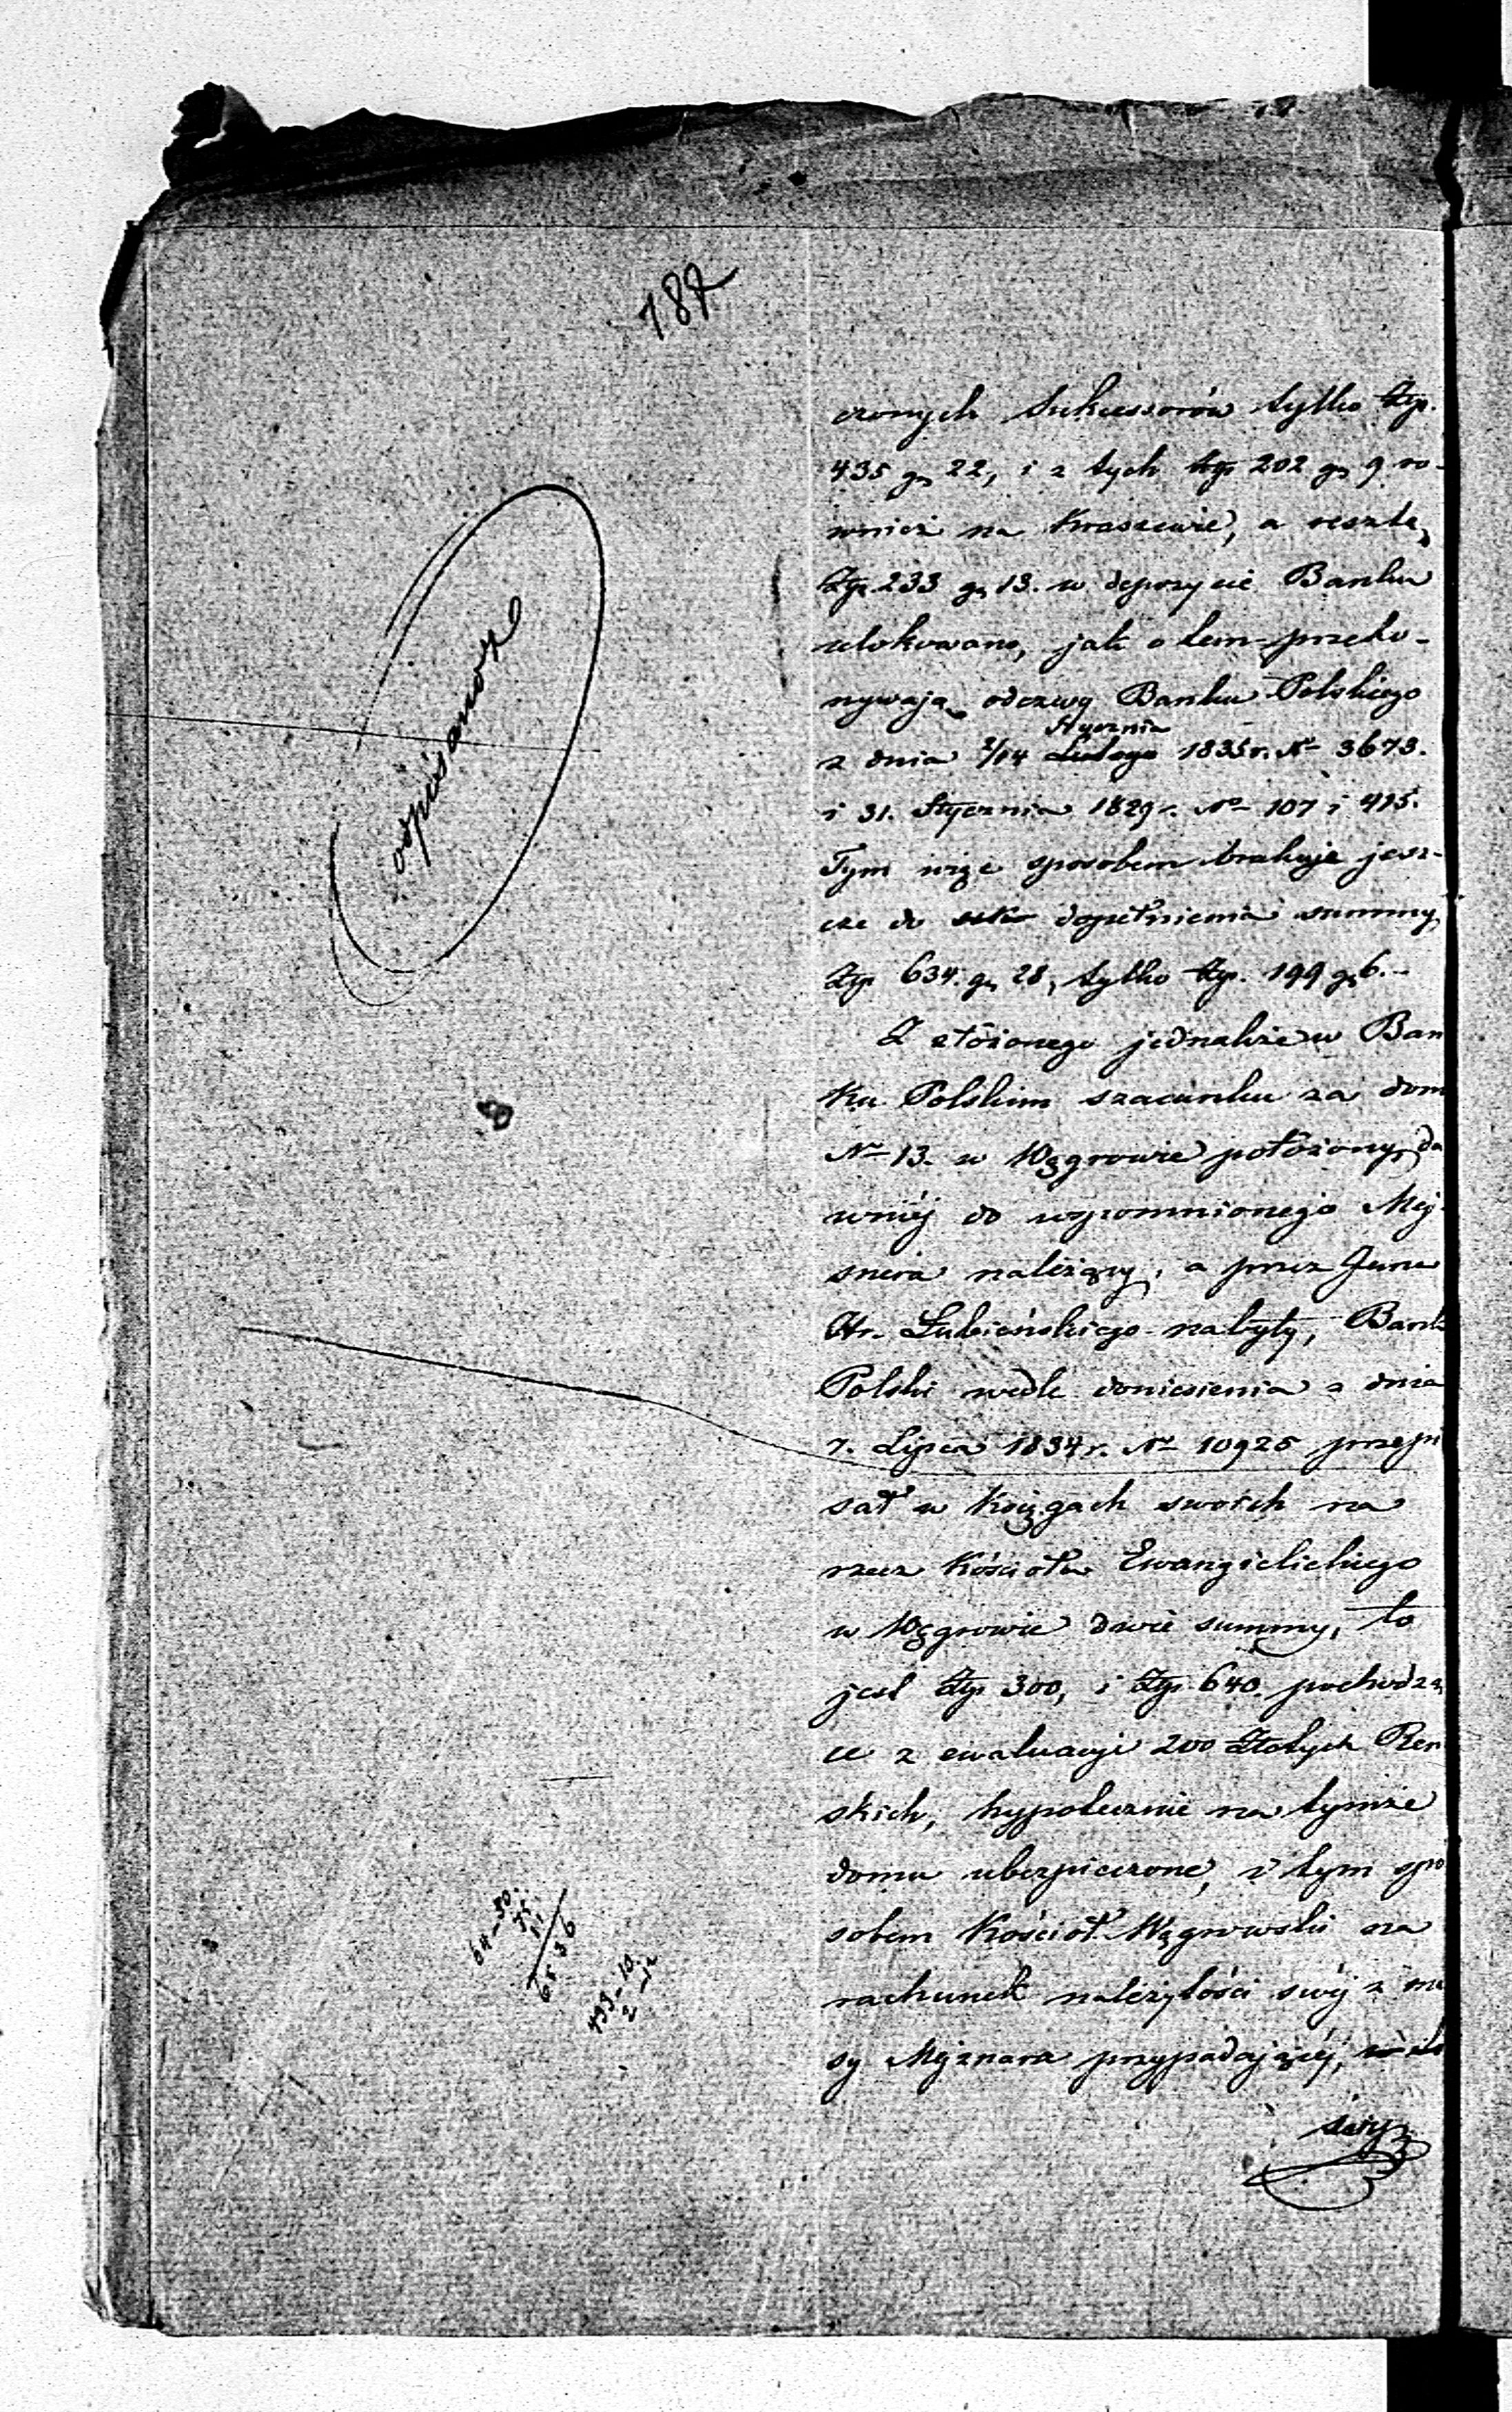 187
odpisano
czonych Sukcessorów tylko Złp.
435 gr 22, i z tych Złp 202 gr 9 ro-
wnież na Kraszewie, a resztę
Złp 233 gr 13. w depozycie Banku
ulokowano, jak o tem przeko-
nywają odezwy Banku Polskiego
Stycznia
z dnia 2/14 Lutego 1835 r. No 3673.
i 31. Stycznia 1829 r. No 107 i 415.
Tym więc sposobem brakuje jesz-
cze do dopełnienia summy
Złp 634. gr 28, tylko Złp. 199 gr 6.-
Z złożonego jednakże w Ban
ku Polskim szacunku za dom
No 13. w Węgrowie położony, da
wniéj do wspomnionego Mej-
snera należący, a przez
Hr. Łubieńskiego nabyty, Bank
Polski wedle doniesienia z dnia
7. Lipca 1834 r. No 10925 przepi
sał w księgach swoich na
rzecz Kościoła Ewangielickiego
w Węgrowie dwie summy, to
jest Złp 300, i Złp 640. pochodzą
ce z ewaluacyi 200 Złotych Ren
skich, hypotecznie na tymże
domu ubezpieczone, i tym spo
sobem Kościoł Węgrowski na
rachunek należytości swéj z ma
sy Mejznara przypadającéj,
64-30.
75
11
65 36
499-10.
2